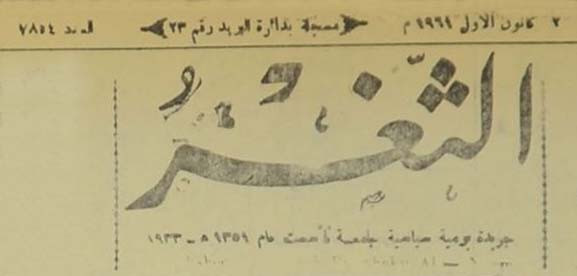 ٢ كانون الاول ١٩٦٩ م مسجلة بدائرة البريد رقم ٢٣ العدد ٧٨٥٤
الثَّغْرُ
جريدة يومية سياسية جامعة تأسست عام ١٣٥٩ ه – ١٩٣٣